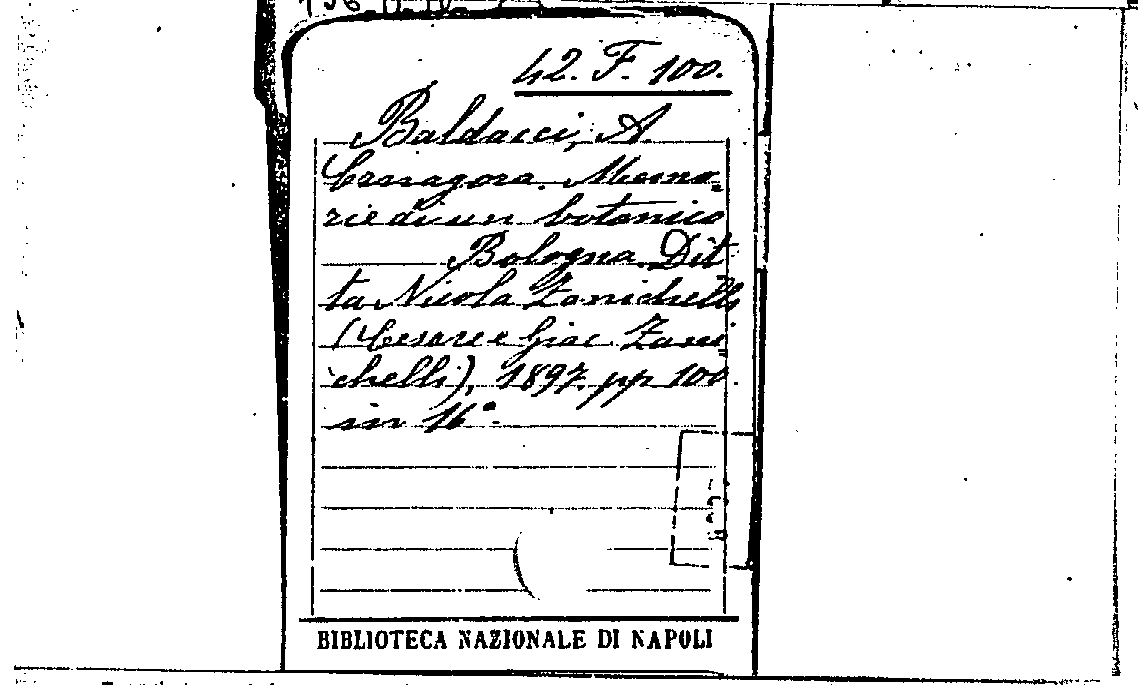 42. F. 100.
Baldacci, A.
Crnagora. Memo=
rie di un botanico
Bologna. Dit
ta Nicola Zanichelli
(Cesare e Giac. Zani=
chelli), 1897. pp 100.
in 16°.
BIBLIOTECA NAZIONALE DI NAPOLI